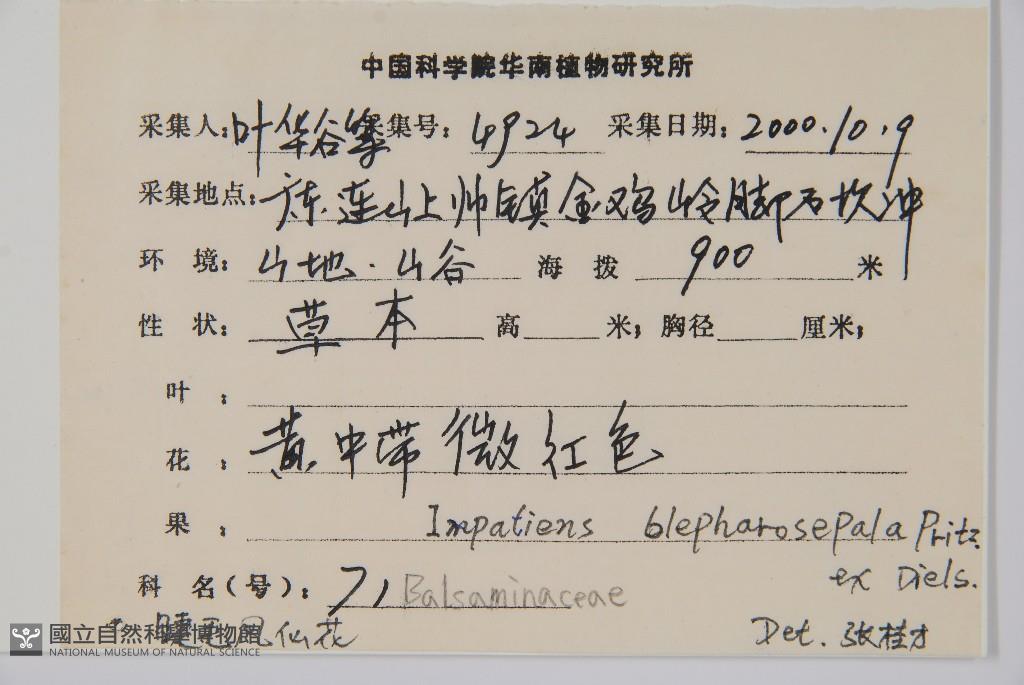 中国科学院华南植物研究所
采集人：叶华谷等 采集号：4924 采集日期：2000.10.9
采集地点：广东连山上帅镇金鸡岭脚石坎冲
环 境：山地·山谷 海 拨 900 米
性 状：草本 高 米；胸径 厘米；
叶 ：
花 ：黄中带微红色
果 ： Impatiens blepharosepala Pritz.
ex Diels.
科 名（号）：71 Balsaminaceae
睫毛凤仙花 Det. 张桂才
國立自然科學博物館
NATIONAL MUSEUM OF NATURAL SCIENCE